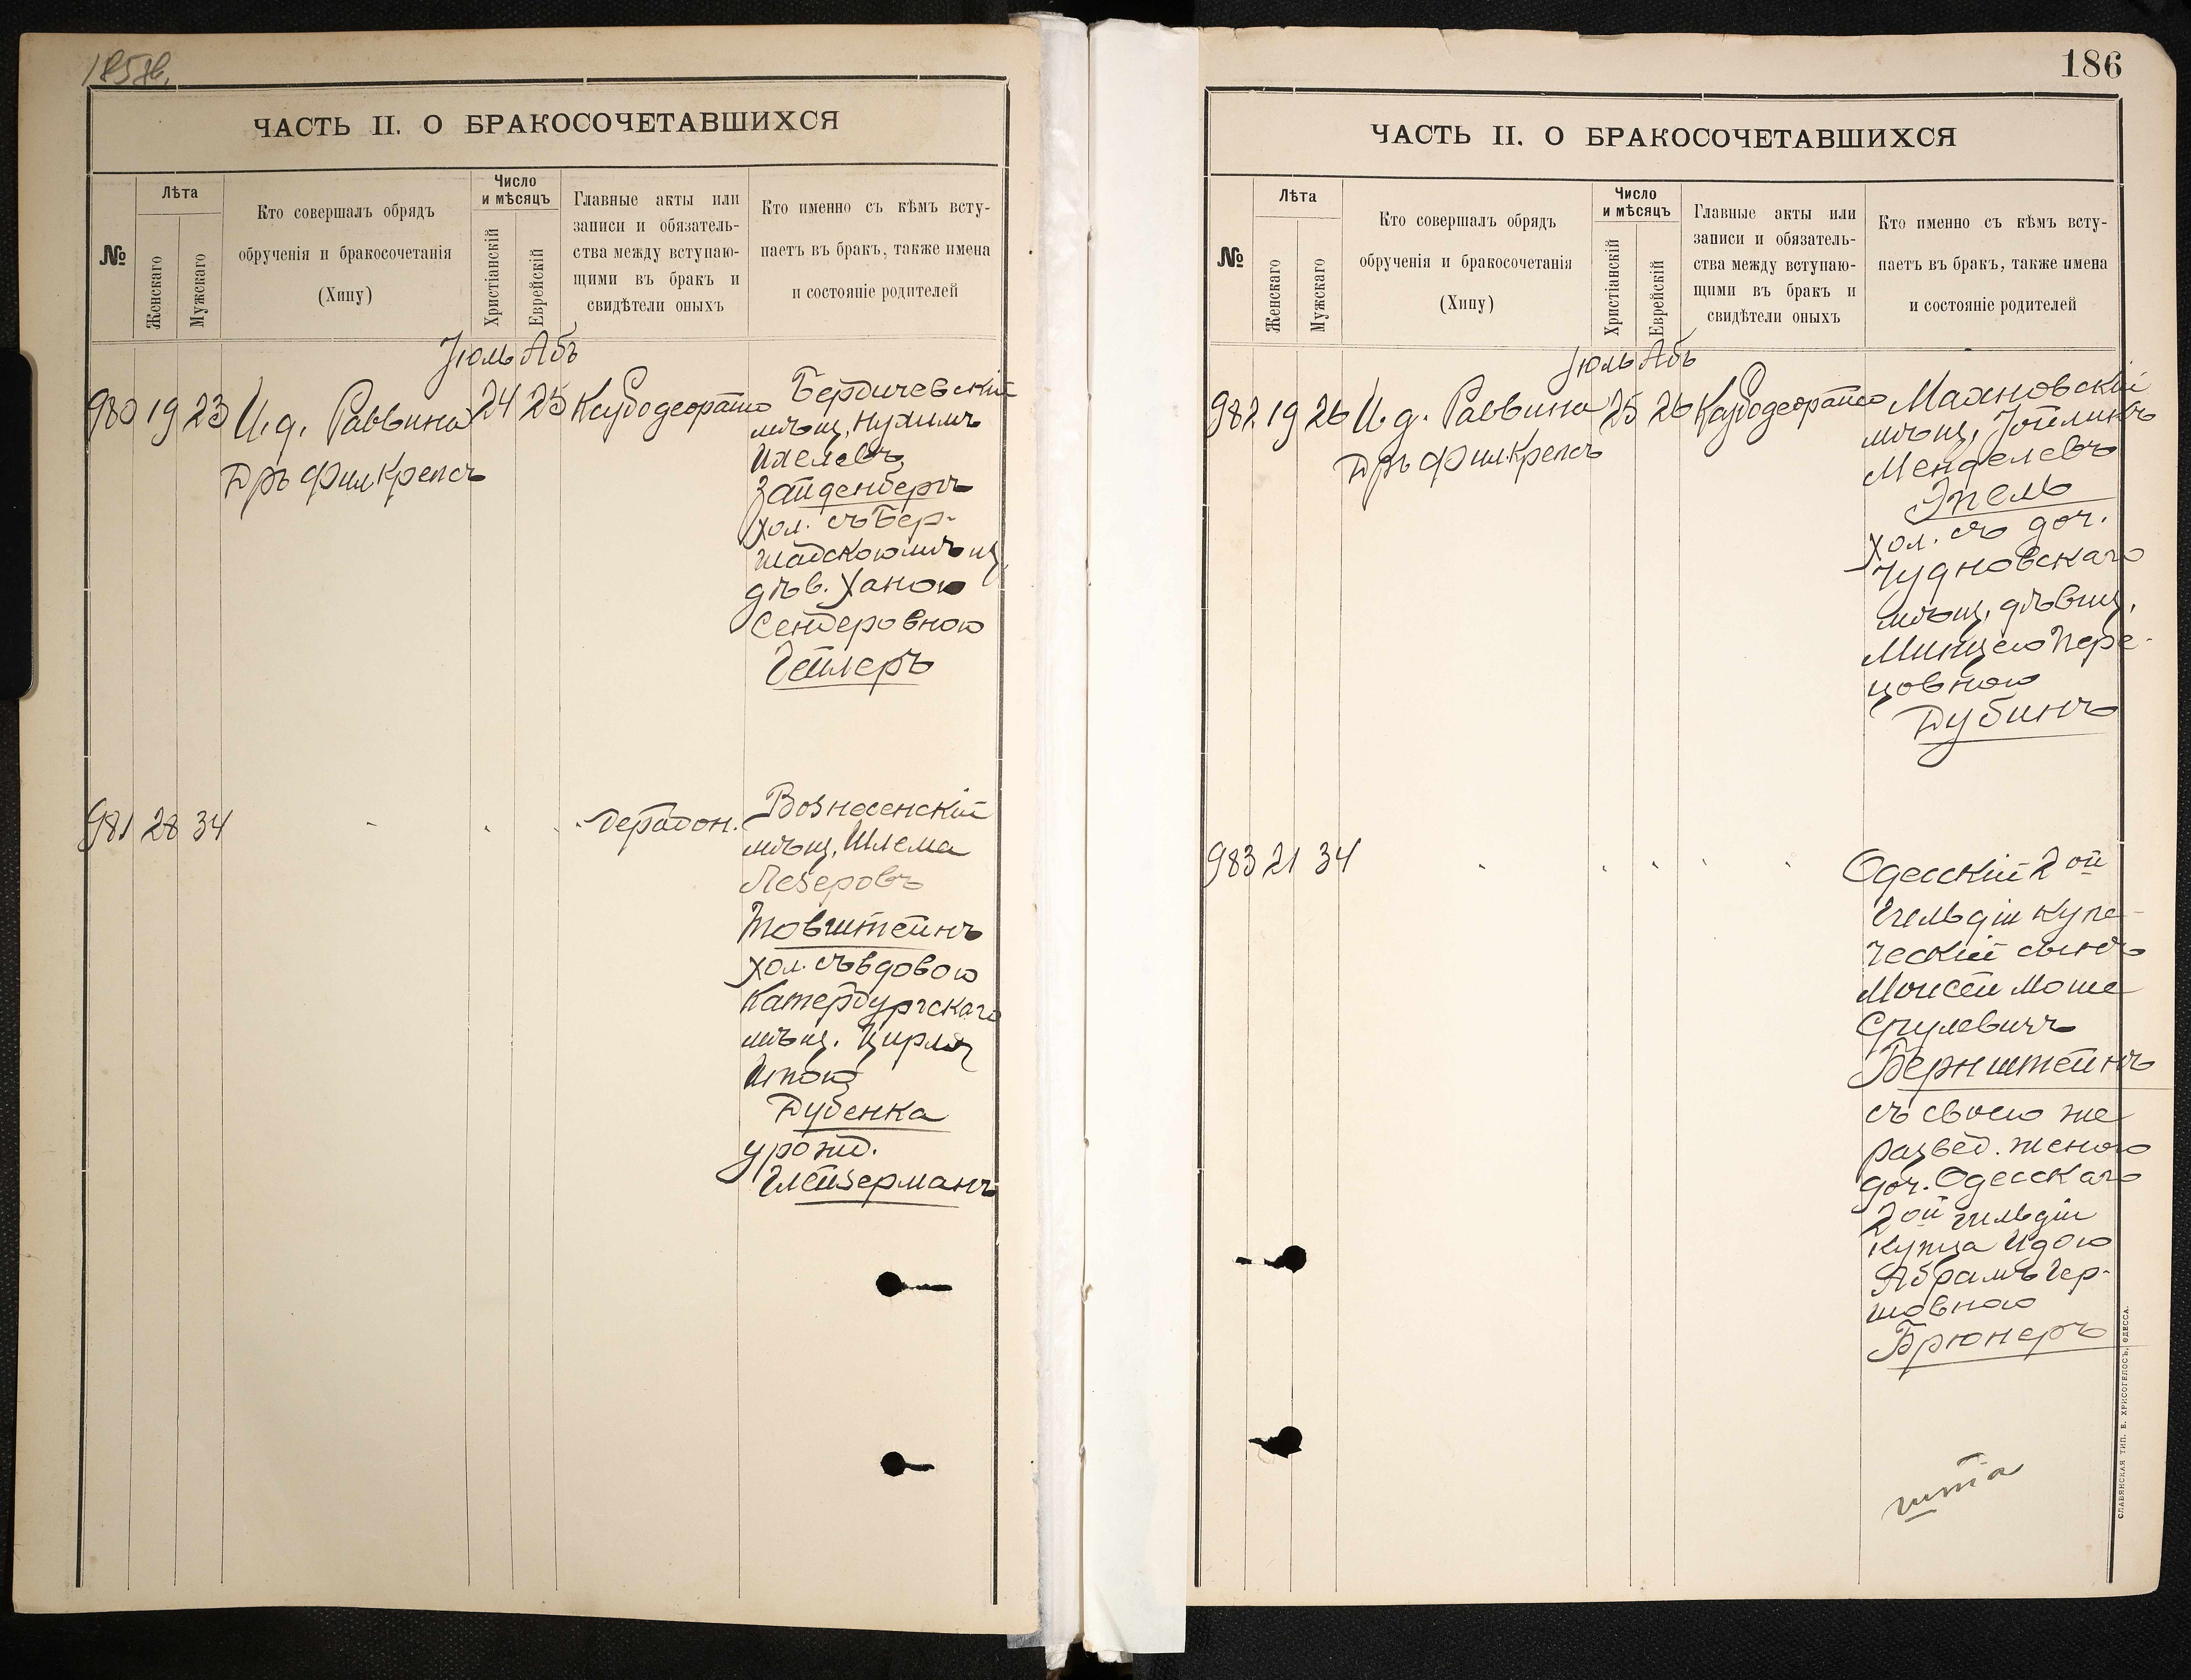 185 об.
ЧАСТЬ II. О БРАКОСОЧЕТАВШИХСЯ
№
Лѣта
Женскаго
Мужскаго
Кто совершалъ обрядъ
обрученія и бракосочетанія
(Хипу)
Число
и мѣсяцъ
Христіанскій
Еврейскій
Главные акты или
записи и обязатель-
ства между вступаю-
щими въ бракъ и
свидѣтели оныхъ
Кто именно съ кѣмъ всту-
паетъ въ бракъ, также имена
и состояніе родителей
Іюль Абъ
980 19 23 И. д. Раввина 24 25
Дръ Фил. Крепсъ
Бердичевскій
мѣщ. Нухимъ
Зайденбергъ
хол. съ Бер-
шадскою мѣщ.
дѣв. Ханою
Сендеровною
Гетлеръ
981 28 34
Вознесенскій
мѣщ. Шлема
Лезеровъ
Товштейнъ
хол. съ вдовою
Катербургскаго
мѣщ.
Дубенка
урожд.
Глейзерманъ
186
ЧАСТЬ II. О БРАКОСОЧЕТАВШИХСЯ
№
Лѣта
Женскаго
Мужскаго
Кто совершалъ обрядъ
обрученія и бракосочетанія
(Хипу)
Число
и мѣсяцъ
Христіанскій
Еврейскій
Главные акты или
записи и обязатель-
ства между вступаю-
щими въ бракъ и
свидѣтели оныхъ
Кто именно съ кѣмъ всту-
паетъ въ бракъ, также имена
и состояніе родителей
Іюль Абъ
982 19 26 И. д. Раввина 25 26
Дръ Фил. Крепсъ
Махновскій
мѣщ.
Менделевъ
Эпель
хол. съ доч.
Чудновскаго
мѣщ. дѣвиц.
Минцею Пере-
цовною
Дубинъ
983 21 34
Одесскій 2ой
гильдіи купе-
ческій сынъ
Моисей Моше
Срулевичъ
Бернштейнъ
съ своею же
развед. женою
доч. Одесскаго
2ой гильдіи
купца Идою
Абрамъ Гер-
шовною
Брюнеръ
СЛАВЯНСКАЯ ТИП. Е. ХРИСОГЕЛОСЪ, ОДЕССА.